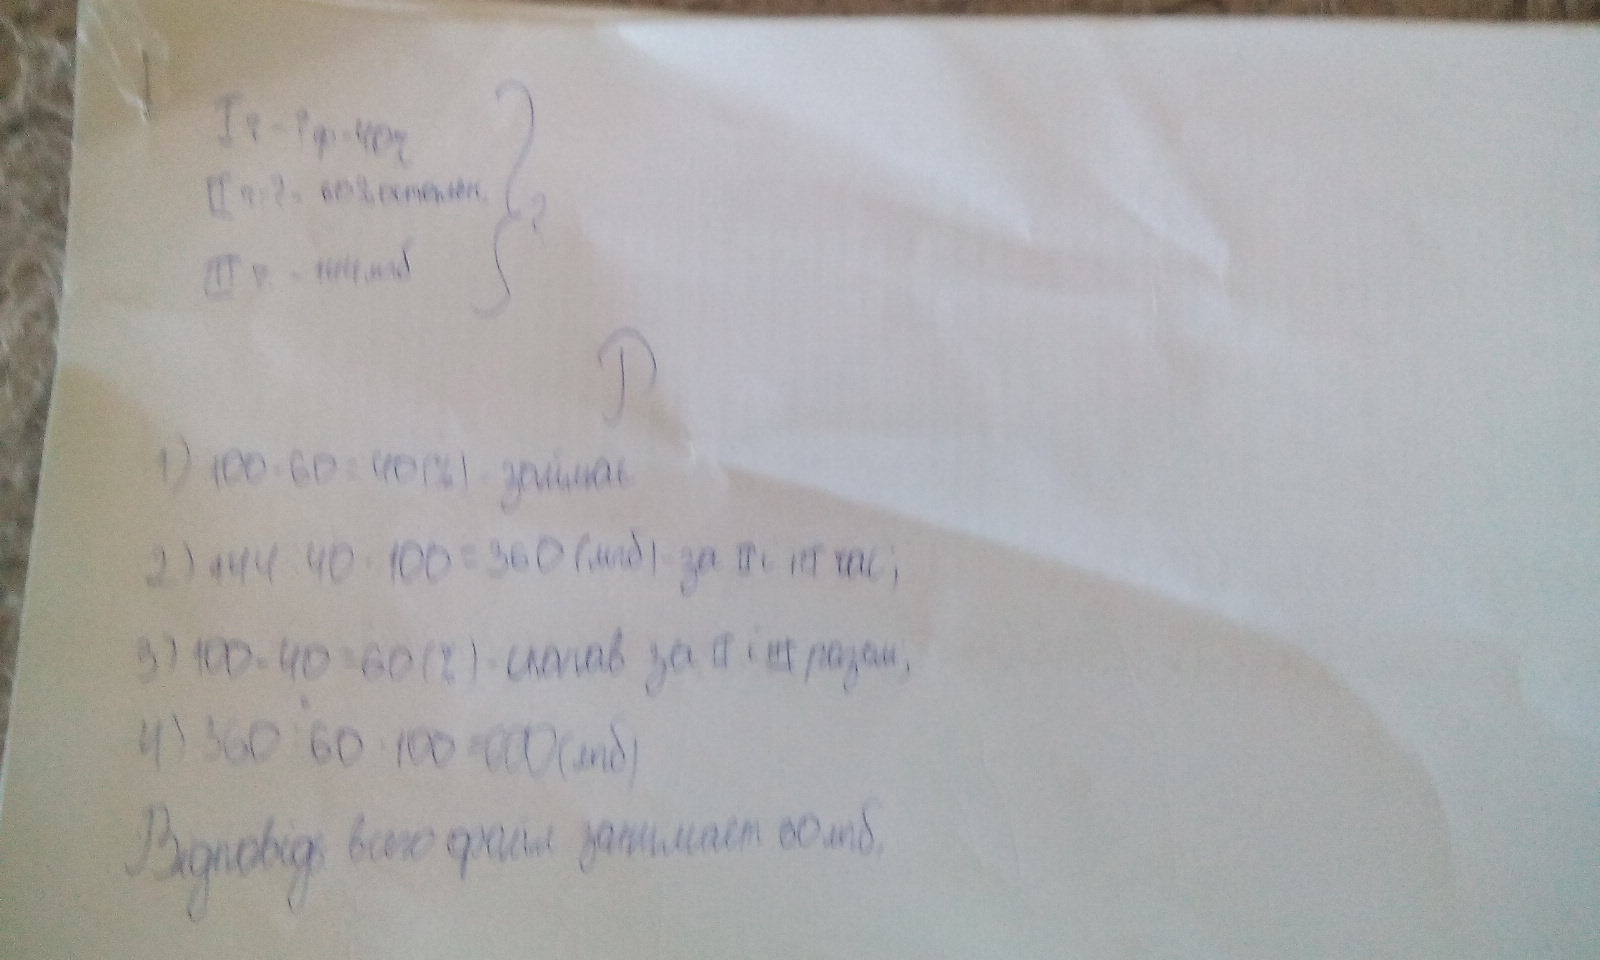 I г - ? ф - 40%
II г - ? - 60% остален.
III г. - 144 мб
?
Р
1) 100 - 60 = 40 (%) - займає
2) 144 : 40 · 100 = 360 (мб) - за II і III час;
3) 100 - 40 = 60 (%) - за II і III разом;
4) 360 : 60 · 100 = 600 (мб)
Відповідь всего файл занимает 60 мб.